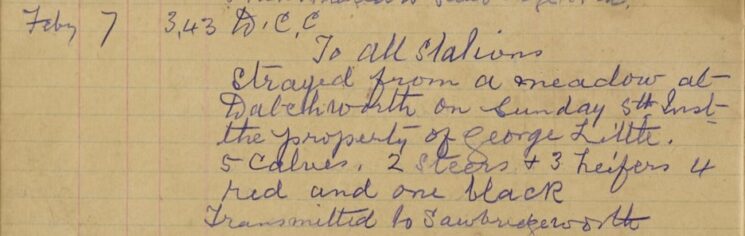 Feby 7 3,43 D.C.C
To all Stations
Strayed from a meadow at
Datchworth on Sunday 5th Inst
the property of George Little.
5 Calves. 2 Steers & 3 heifers 4
red and one black
Transmitted to Sawbridgeworth